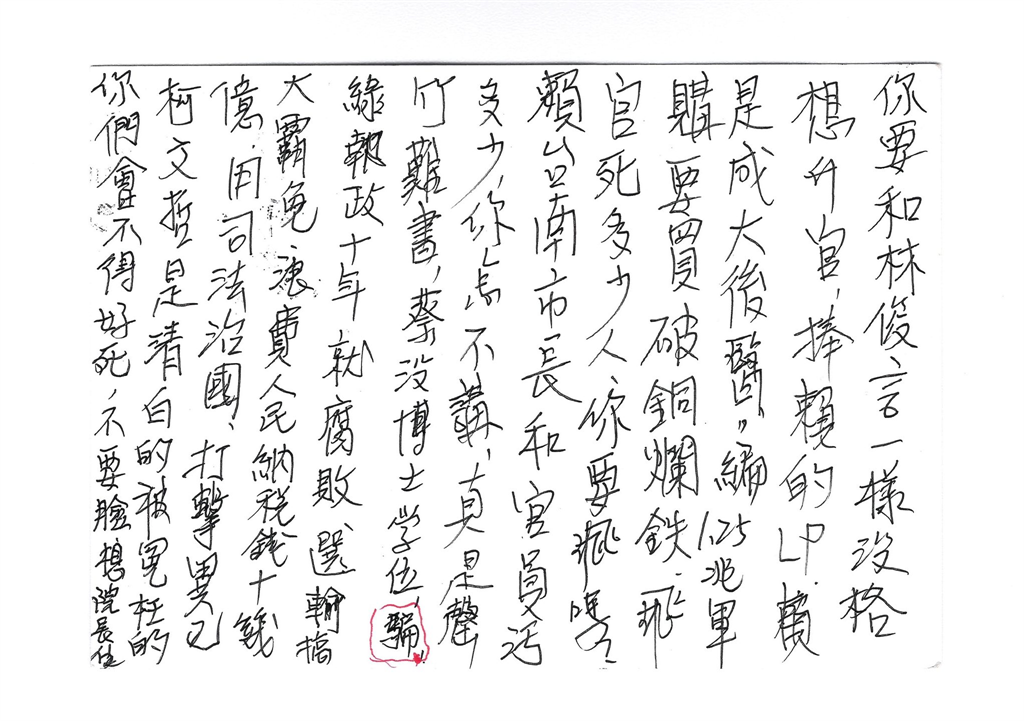 你要和林俊言一樣没格
想升官,捧賴的LP.賴
是成大後醫,,編1.25兆軍
購要買破銅爛鉄.飛
官死多少人、你要飛嗎?
賴台南市長和官員污
多少,你怎不講,真是罄
竹難書,蔡没博士学位,騙!
綠報政十年就腐敗、選輸搞
大罷免、浪費人民納稅錢十幾
億,用司法治國、打擊異己
柯文哲是清白的被冤枉的
你們會不得好死、不要臉想院長位